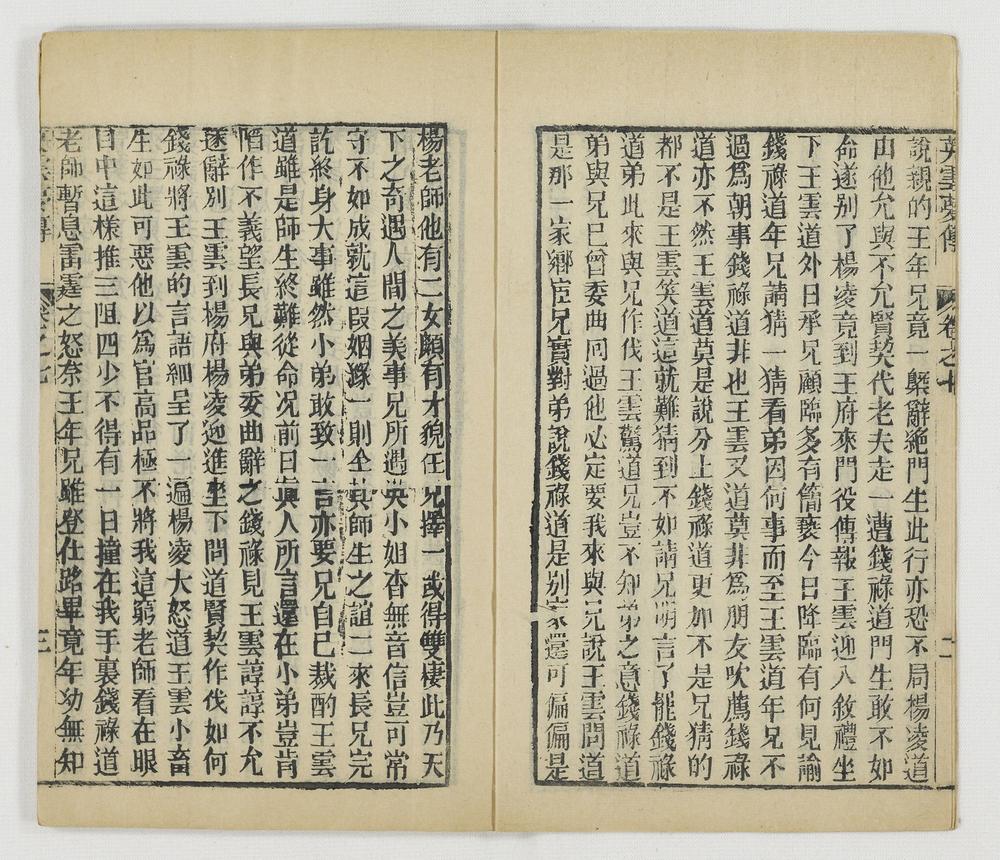 英雲夢傳 卷之七 二
說親的王年兄竟一槩辭絶門生此行亦恐不局楊凌道
由他允與不允賢契代老夫走一遭錢祿道門生敢不如
命遂别了楊凌竟到王府來門役傳報王雲迎入敘禮坐
下王雲道外日承兄顧臨多有簡褻今日降臨有何見諭
錢祿道年兄請猜一猜看弟因何事而至王雲道年兄不
過爲朝事錢祿道非也王雲又道莫非爲朋友吹薦錢祿
道亦不然王雲道莫是說分上錢祿道更加不是兄猜的
都不是王雲笑道這就難猜到不如請兄明言了罷錢祿
道弟此來與兄作伐王雲驚道兄豈不知弟之意錢祿道
弟與兄巳曾委曲囘過他心定要我來與兄說王雲問道
是那一家鄉宦兄實對弟說錢祿道是别家還可偏偏是
楊老師他有二女願有才貌任兄擇一或得雙棲此乃天
下之奇遇人間之美事兄所遇英小姐杳無音信豈可常
守不如成就這段姻緣一則全其師生之誼二來長兄完
訖終身大事雖然小弟敢致一言亦要兄自己裁酌王雲
道雖是師生終難從命况前日眞人所言還在小弟豈肯
陷作不義望長兄與弟委曲辭之錢祿見王雲諄諄不允
遂辭别王雲到楊府楊凌迎進坐下問道賢契作伐如何
錢祿將王雲的言語細呈了一遍楊凌大怒道王雲小畜
生如此可惡他以爲官高品極不將我這窮老師看在眼
目中這樣推三阻四少不得有一日撞在我手裏錢祿道
老師暫息雷霆之怒奈王年兄雖登仕路畢竟年幼無知
英雲夢傳 卷之七 三